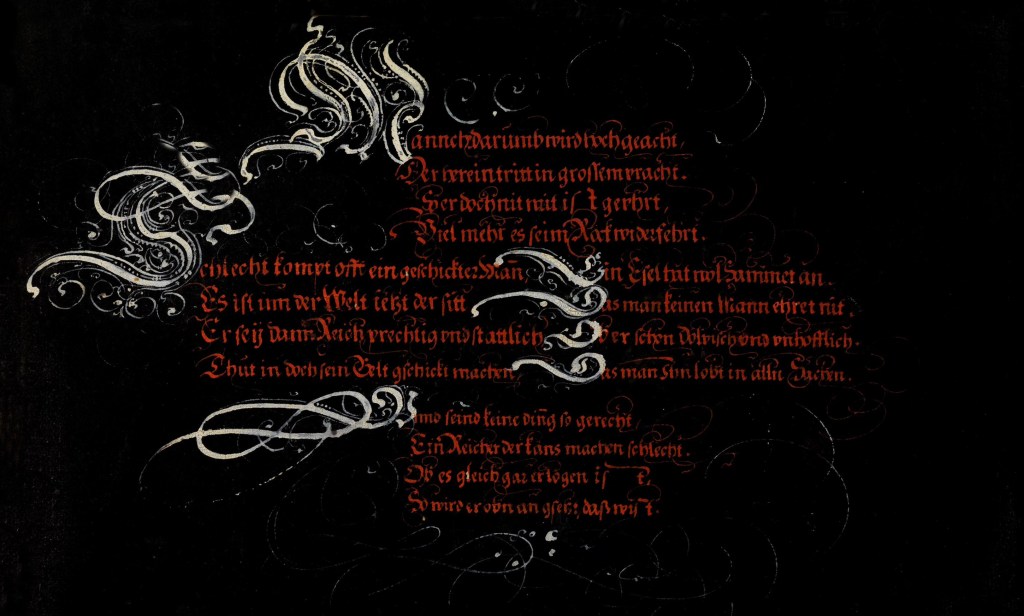 Mannich darumb wird hoch geacht,
Der herein tritt in grossem pracht.
Der doch nit mit ist gerhrt,
Viel mehr es seim Rock widerfehrt.
Schlecht kompt offt ein geschickter Man
Ein Esel tut wol Sammet an.
Es ist um der Welt ietzt der sitt
Das man keinen Mann ehret nit,
Er seÿ dann Reich prechtig und stattlich
Ob er schon Dölpisch und unhofflich.
Thut in doch sein Gelt gschickt machen,
Das man ihn lobt in allen Sachen.
Unnd seind keine ding so gerecht
Ein Reicher der kans machen schlecht.
Ob es gleich gar erlogen ist,
So wird er obn an gsetzt, daß wist.